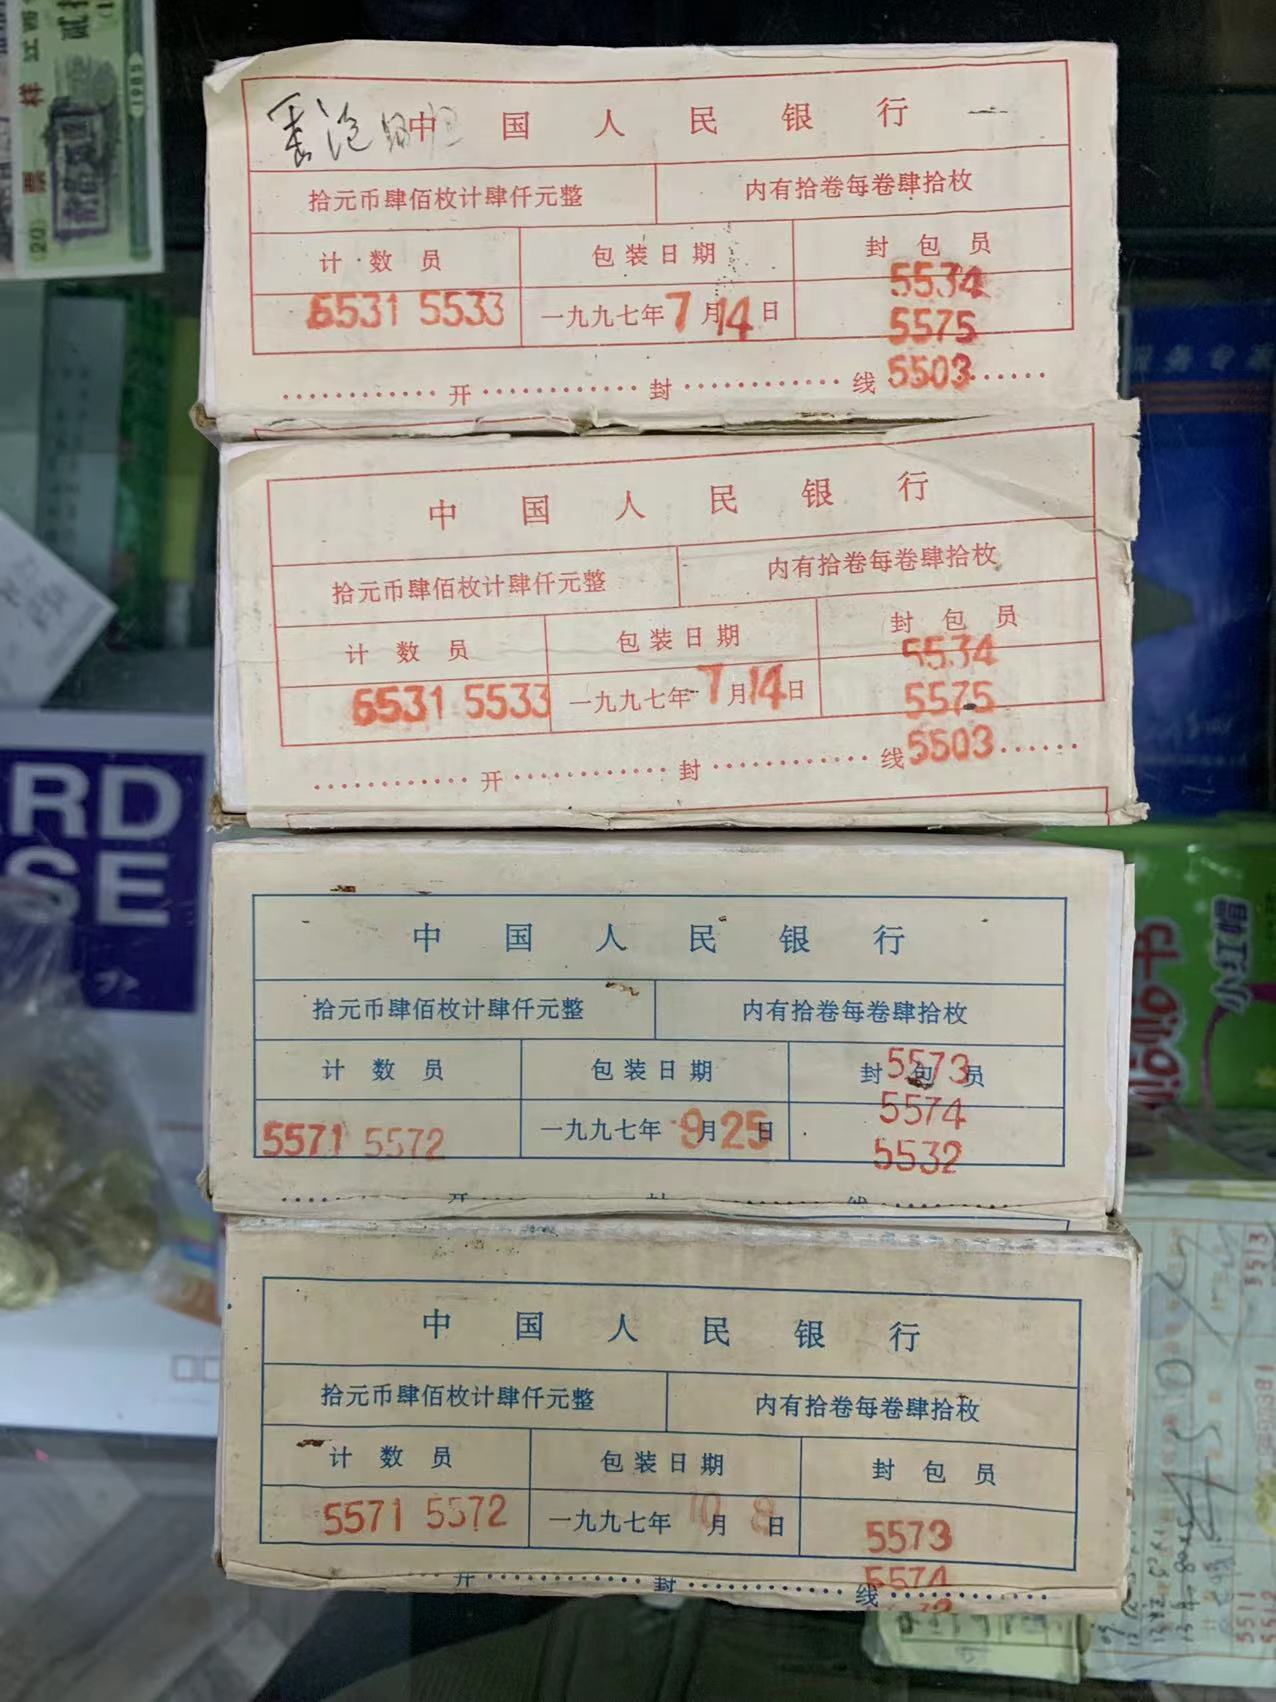 中 国 人 民 银 行
拾元币肆佰枚计肆仟元整 内有拾卷每卷肆拾枚
计 数 员 包装日期 封 包 员
5534
5531 5533 一九九七年 7 月 14 日 5575
开 封 线 5503
中 国 人 民 银 行
拾元币肆佰枚计肆仟元整 内有拾卷每卷肆拾枚
计 数 员 包装日期 封 包 员
5534
5531 5533 一九九七年 7 月 14 日 5575
开 封 线 5503
中 国 人 民 银 行
拾元币肆佰枚计肆仟元整 内有拾卷每卷肆拾枚
计 数 员 包装日期 封 包 员
5573
5571 5572 一九九七年 9 月 25 日 5574
5532
开 封 线
中 国 人 民 银 行
拾元币肆佰枚计肆仟元整 内有拾卷每卷肆拾枚
计 数 员 包装日期 封 包 员
5571 5572 一九九七年 10 月 8 日 5573
5574
开 封 线
样
票
1985
(20)
RD
SE
小红帽
5513
5511
5512